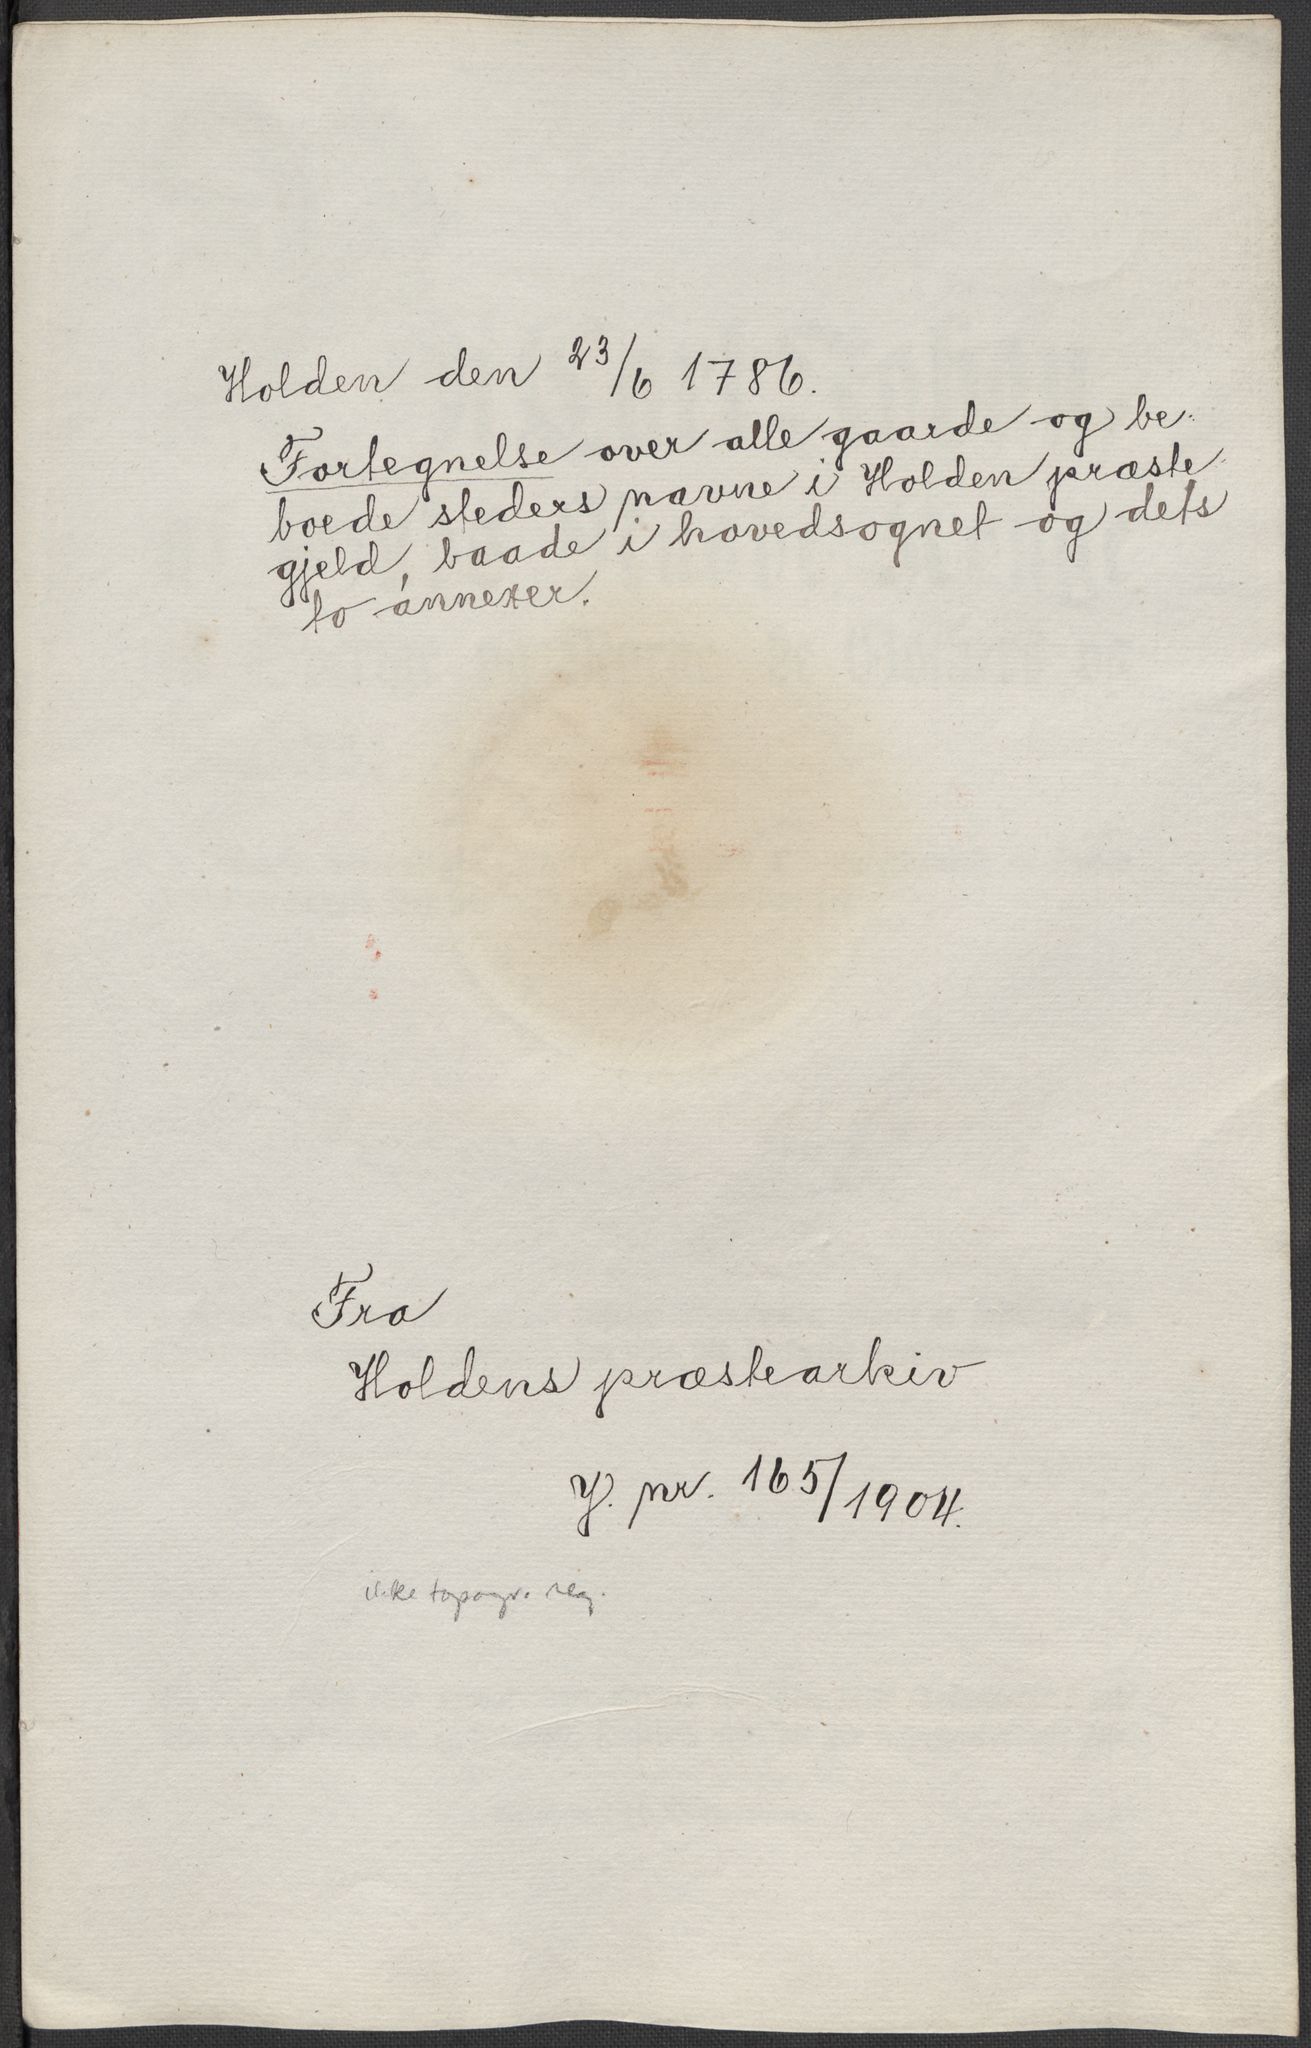 Holden den 23/6 1786.
Fortegnelse over alle gaarde og be-
boede steders navne i Holden præste
gjeld, baade i hovedsognet og dets
to annexer.
Fra
Holdens præstearkiv
J. nr. 165/1904.
ikke topogr. reg.